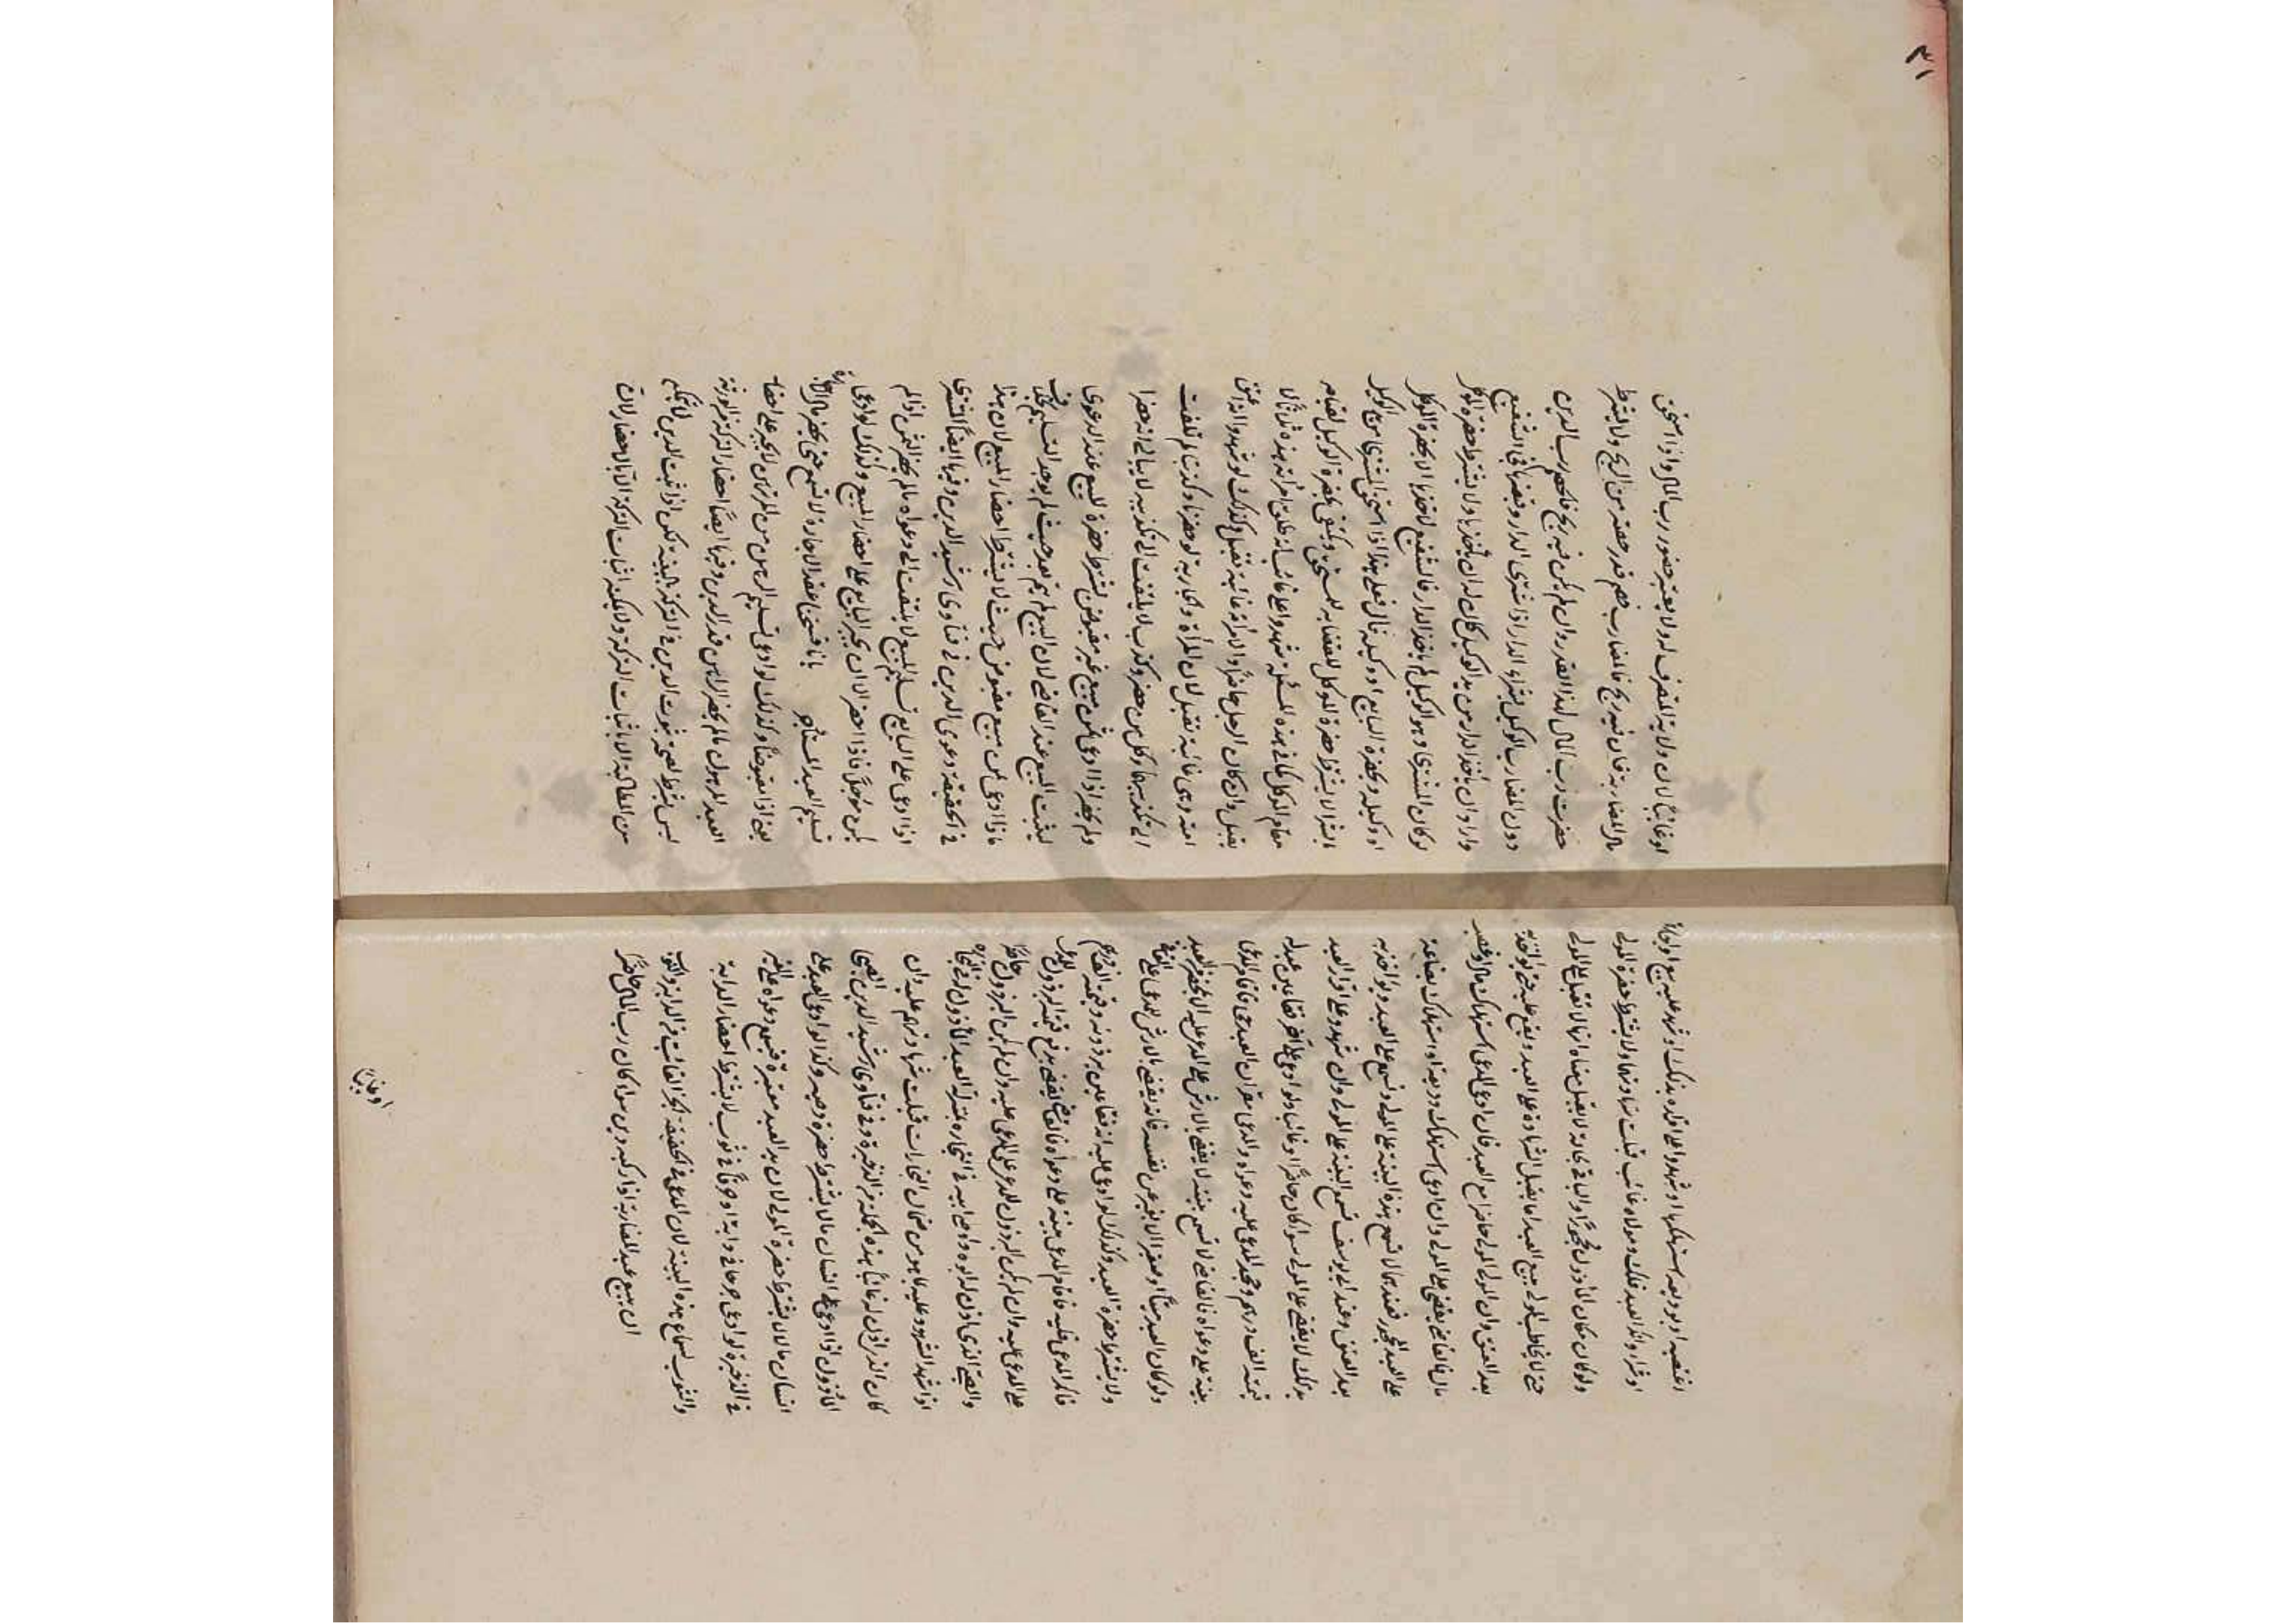 اغتصبه او بوديعة استهلكها او شهدوا على اقراره بذلك او شهد عليه ببيع او اجارة
او شراء وانكر العبد ذلك ومولاه غائب قبلت شهادتهما ولا يشترط حضرة المولى
ولو كان مكان المأذون محجورا والباقي بحاله لا يقبل هناه انها لا تقبل على المولى
حتى لا يخاطب المولى ببيع العبد اما يقبل الشهادة على العبد ويقع عليه حتى يؤاخذ به
بعد العتق وان المولى حاضرا مع العبد فان ادعى المدعى استهلاك مال او غصب
مال فالقاضي يقضي على المولى وان ادعى استهلاك وديعة او استهلاك بضاعة
على العبد المحجور فعندهما لا تسمع هذه البينة على المولى وتسمع على العبد ويؤاخذ به
بعد العتق وعند ابي يوسف تسمع البينة على المولى وان شهدوا على اقرار العبد
بذلك لا يقضى على المولى سواء كان حاضرا او غائبا ولو ادعى على آخر فقأ عين عبد له
قيمته الف درهم وجحد المدعى عليه دعواه والمدعى مقر ان العبد حي فاقام المدعى
بينة على دعواه فالقاضي لا تسمع بينته لا يقضى بالارش على المدعى عليه الا بحضرة العبد
ولو كان العبد ميتا او صغيرا لا يعبر عن نفسه فانه يقضى بالارش للمدعى على الفاقئ
ولا يشترط حضرة العبد وكذلك لو ادعى عليه انه فقأ عين برذونه وقيمته الف درهم
فانكر المدعى عليه فاقام المدعى بينة على دعواه فالقاضي يقضي بربع قيمة البرذون للمدعى
على المدعى عليه وان لم يكن البرذون للمدعى على المدعى عليه وان لم يكن البرذون حاضرا
والصبي الذي اذن له ابوه او وصي ابيه في التجارة بمنزلة العبد المأذون له في التجارة
اذا شهد الشهود عليه بما هو من ضمان التجارات قبلت شهادتهم عليه وان
كان الذي اذن له غائبا بهذه الجملة من الذخيرة وفي فتاوى رشيد الدين الصبي
المأذون اذا ادعى على انسان مالا لا يشترط حضرة وصيه وكذا لو ادعى العبد على
انسان مالا لا يشترط حضرة المولى لان يد العبد معتبرة فيصح دعواه على الغير
في الذخيرة لو ادعى جرحا في دابة او خرقا في ثوب لا يشترط احضار الدابة
والثوب لسماع هذه البينة لان المدعى في الحقيقة الجزء الفائت من الدابة والثوب
ان يبيع عبد المضاربة اذا ركبه دين سواء كان رب المال حاضرا
او غائبا
٣١
او غائبا لان ولاية التصرف له ولا يعتبر حضور رب المال واذا استحق
مال المضاربة فان فيه ربح فالمضارب خصم قدر حصته من الربح ولا يشترط
حضرت رب المال لهذا القدر وان لم يكن فيه ربح فالخصم رب الدين
دون المضارب الوكيل بشراء الدار اذا اشترى الدار وقبضها فجاء الشفيع
واراد ان يأخذ الدار من يد الوكيل كان له ان يأخذها ولا يشترط حضرة الموكل
لو كان المشترى وهو الوكيل لم يأخذ الدار فالشفيع لا يأخذها الا بحضرة الموكل
او وكيله وبحضرة البايع او وكيله قال فعلى هذا اذا استحق المشترى من يد الوكيل
بالشراء لا يشترط حضرة الموكل للقضاء به للمستحق ويكتفى بحضرة الوكيل لقيامه
مقام الموكل كما في هذه المسئلة شهدوا على غائب انه طلق امرأته هذه ثلاثا لا
يقبل وان كان الرجل حاضرا والامرأة غائبة تقبل وكذلك لو شهدوا انه اعتق
امته وهي غائبة تقبل لان المرأة والجارية لو حضرتا وكذبتا لم تلتفت
الى تكذيبهما وكل من حضر وكذب لا يلتفت الى تكذيبه لا يبالى انه حضر ام لا
ولم يحضر اذا ادعى ثمن مبيع غير مقبوض يشترط حضرة المبيع عند الدعوى
ليثبت البيع عند القاضي لان البيع لم يتم بعد حيث لم يوجد التسليم بخلاف
ما اذا ادعى ثمن مبيع مقبوض حيث لا يشترط احضار المبيع لان هذا
في الحقيقة دعوى الدين في فتاوى رشيد الدين وفيها ايضا المشترى
اذا ادعى على البايع تسليم المبيع لا يلتفت الى دعواه ما لم يحضر الثمن اذا لم
يكن مؤجلا فاذا احضر الآن يجبر البايع على احضار المبيع وكذلك لو ادعى
تسليم العبد المستأجر بناء فسخنا عقد الاجارة لا تسمع حتى يحضر مال الاجارة
يعنى اذا مقبوضا وكذلك لو ادعى تسليم الرهن من المرتهن لا يجبر على احضار
العبد المرهون ما لم يحضر الراهن قدر الدين وفيها ايضا احضار التركة من الورثة
ليس بشرط لصحة ثبوت الدين في التركة بالبينة لكن اذا ثبت الدين لا يحكم
من المطالبة الا باثبات التركة ولا يمكنه اثبات التركة الا باحضار لاث